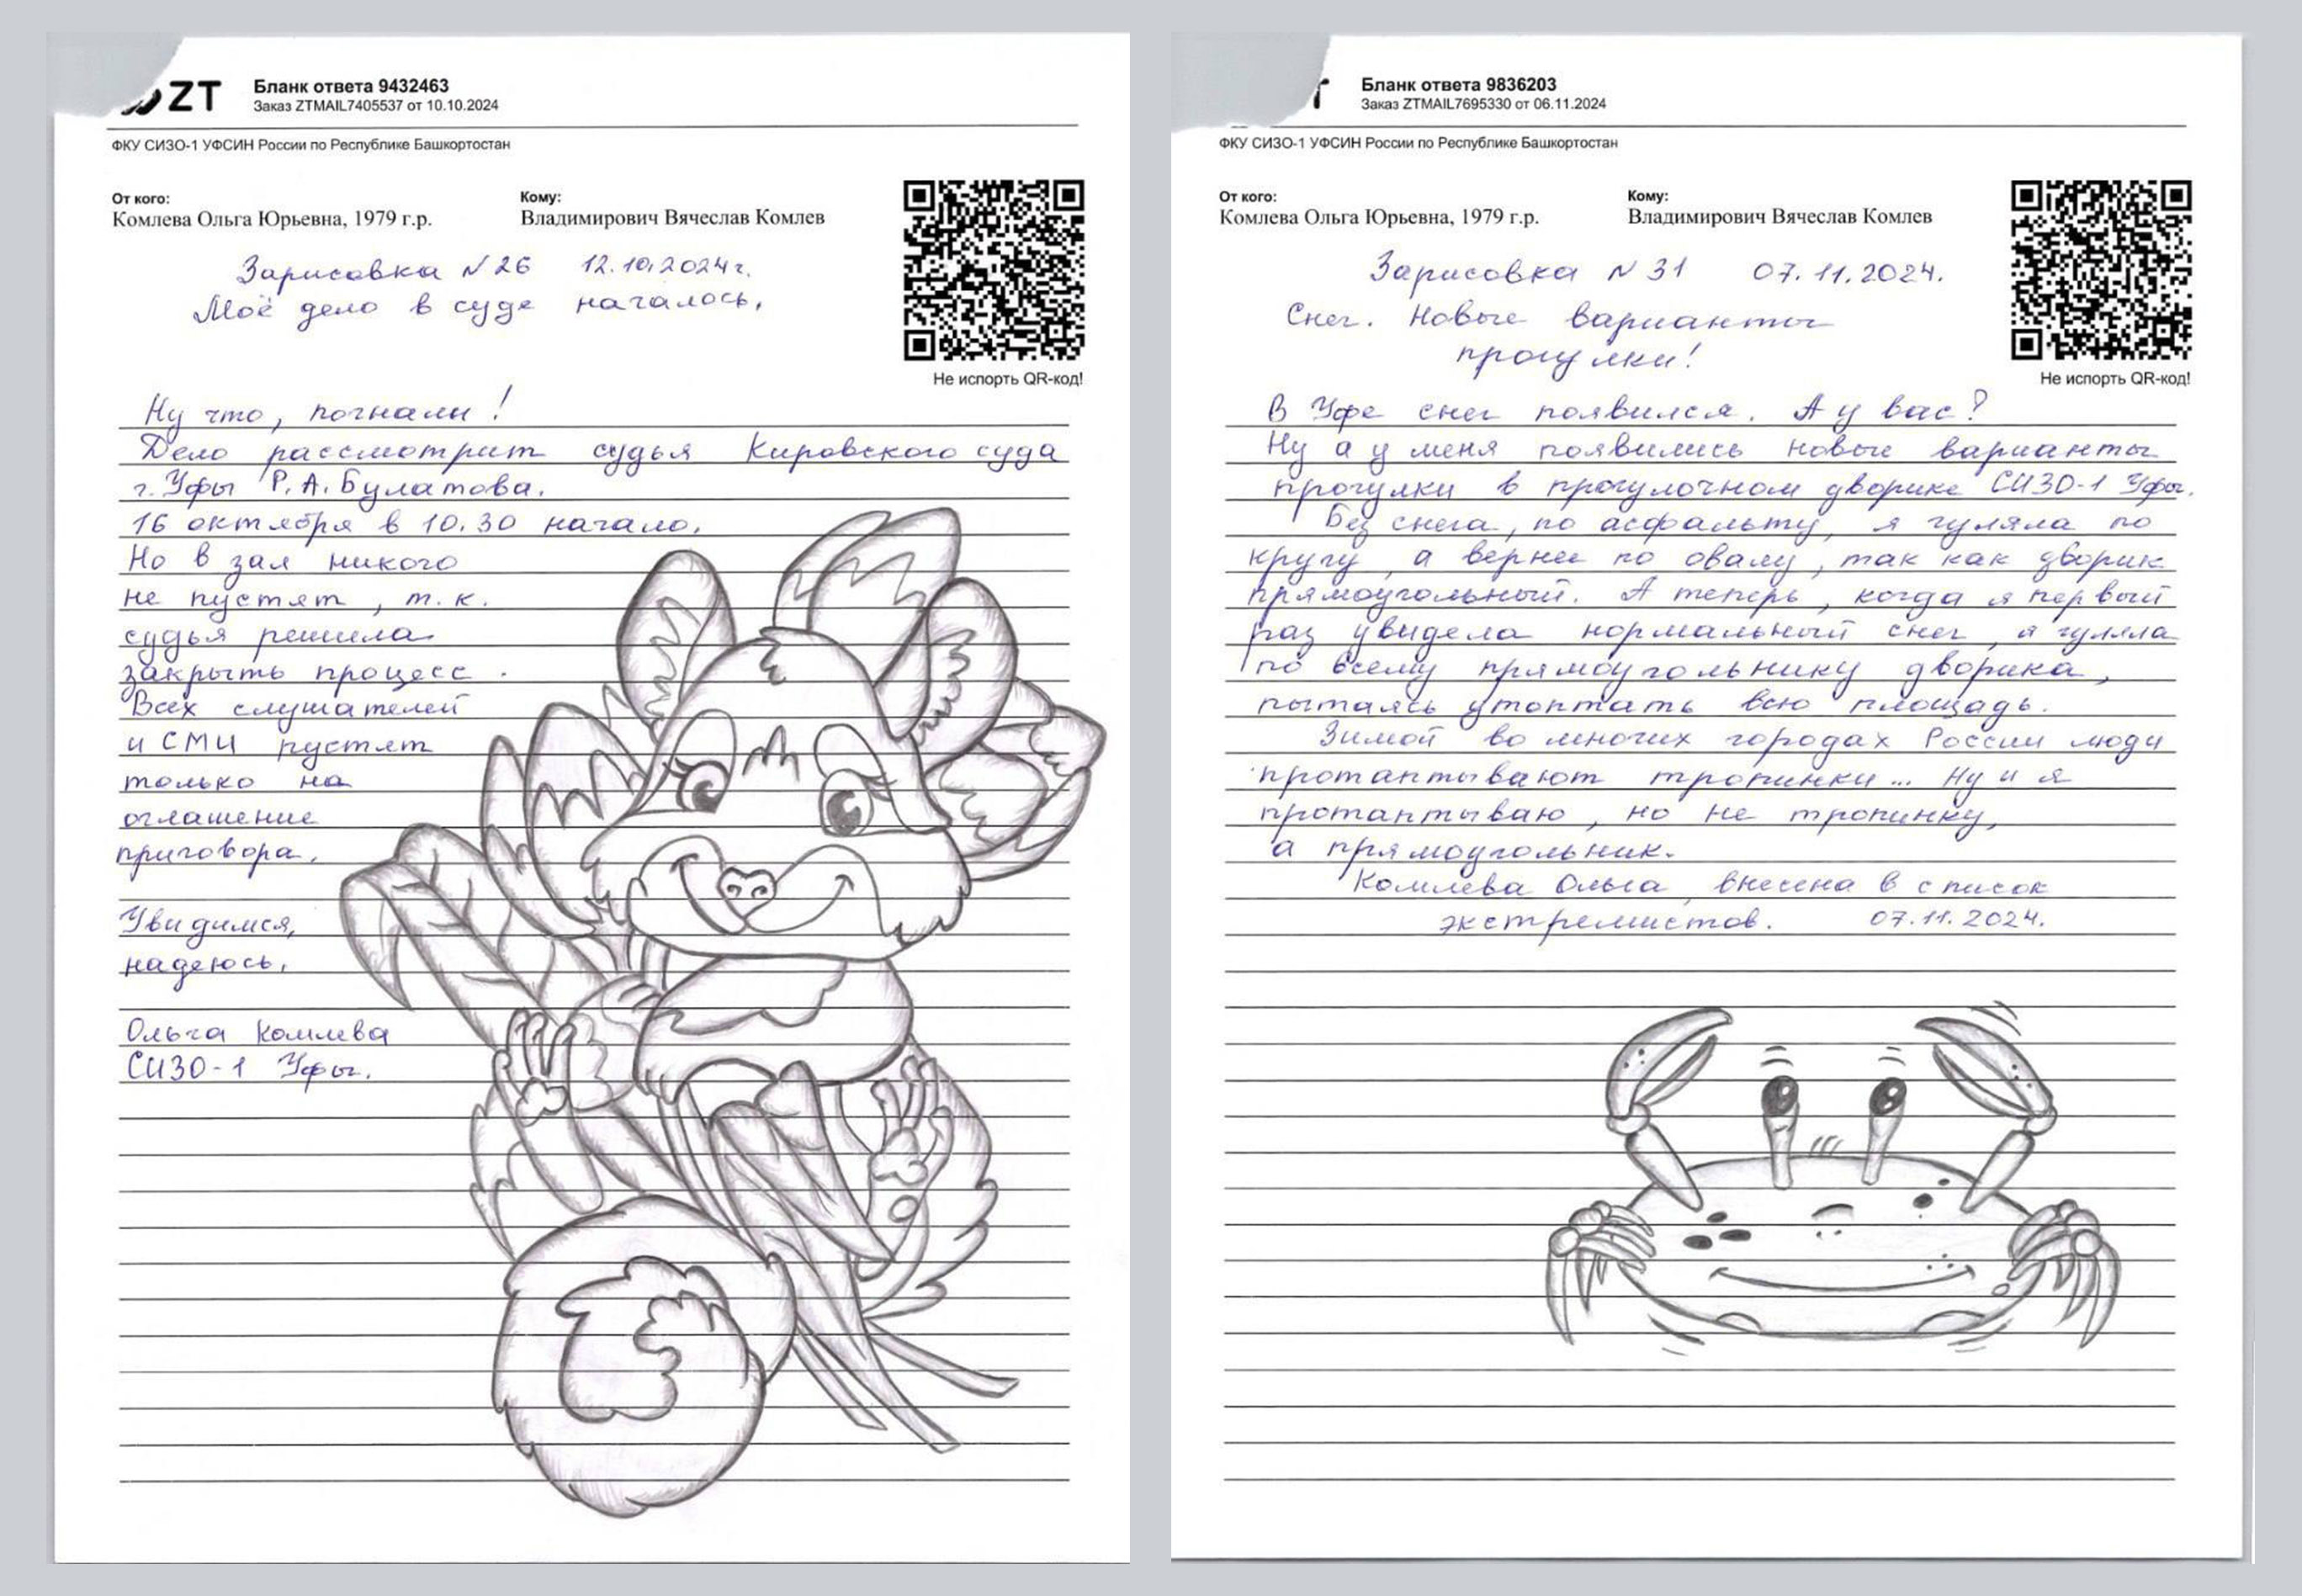 ZT
Бланк ответа 9432463
Заказ ZTMAIL7405537 от 10.10.2024
ФКУ СИЗО-1 УФСИН России по Республике Башкортостан
От кого:
Комлева Ольга Юрьевна, 1979 г.р.
Кому:
Владимирович Вячеслав Комлев
Не испорть QR-код!
Зарисовка N 26 12.10.2024г.
Моё дело в суде началось.
Ну что, погнали!
Дело рассмотрит судья Кировского суда
г. Уфы Р.А. Булатова.
16 октября в 10.30 начало.
Но в зал никого
не пустят, т.к.
судья решила
закрыть процесс.
Всех слушателей
и СМИ пустят
только на
оглашение
приговора.
Увидимся,
надеюсь.
Ольга Комлева
СИЗО-1 Уфы.
Бланк ответа 9836203
Заказ ZTMAIL7695330 от 06.11.2024
ФКУ СИЗО-1 УФСИН России по Республике Башкортостан
От кого:
Комлева Ольга Юрьевна, 1979 г.р.
Кому:
Владимирович Вячеслав Комлев
Не испорть QR-код!
Зарисовка N 31 07.11.2024.
Снег. Новые варианты
прогулки!
В Уфе снег появился. А у вас?
Ну а у меня появились новые варианты
прогулки в прогулочном дворике СИЗО-1 Уфы.
Без снега, по асфальту, я гуляла по
кругу, а вернее по овалу, так как дворик
прямоугольный. А теперь, когда я первый
раз увидела нормальный снег, я гуляла
по всему прямоугольнику дворика,
пытаясь утоптать всю площадь.
Зимой во многих городах России люди
протаптывают тропинки... Ну и я
протаптываю, но не тропинку,
а прямоугольник.
Комлева Ольга, внесена в список
экстремистов. 07.11.2024.